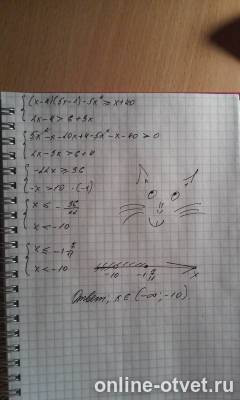 (x-4)(5x-1)-5x² ≥ x+40
2x-4 > 6+3x
5x²-x-20x+4-5x²-x-40 ≥ 0
2x-3x > 6+4
-22x ≥ 36
-x > 10 · (-1)
x ≤ -36/22
x < -10
x ≤ -1 7/11
x < -10
-10 -1 7/11 x
Ответ: x ∈ (-∞; -10)
online-otvet.ru